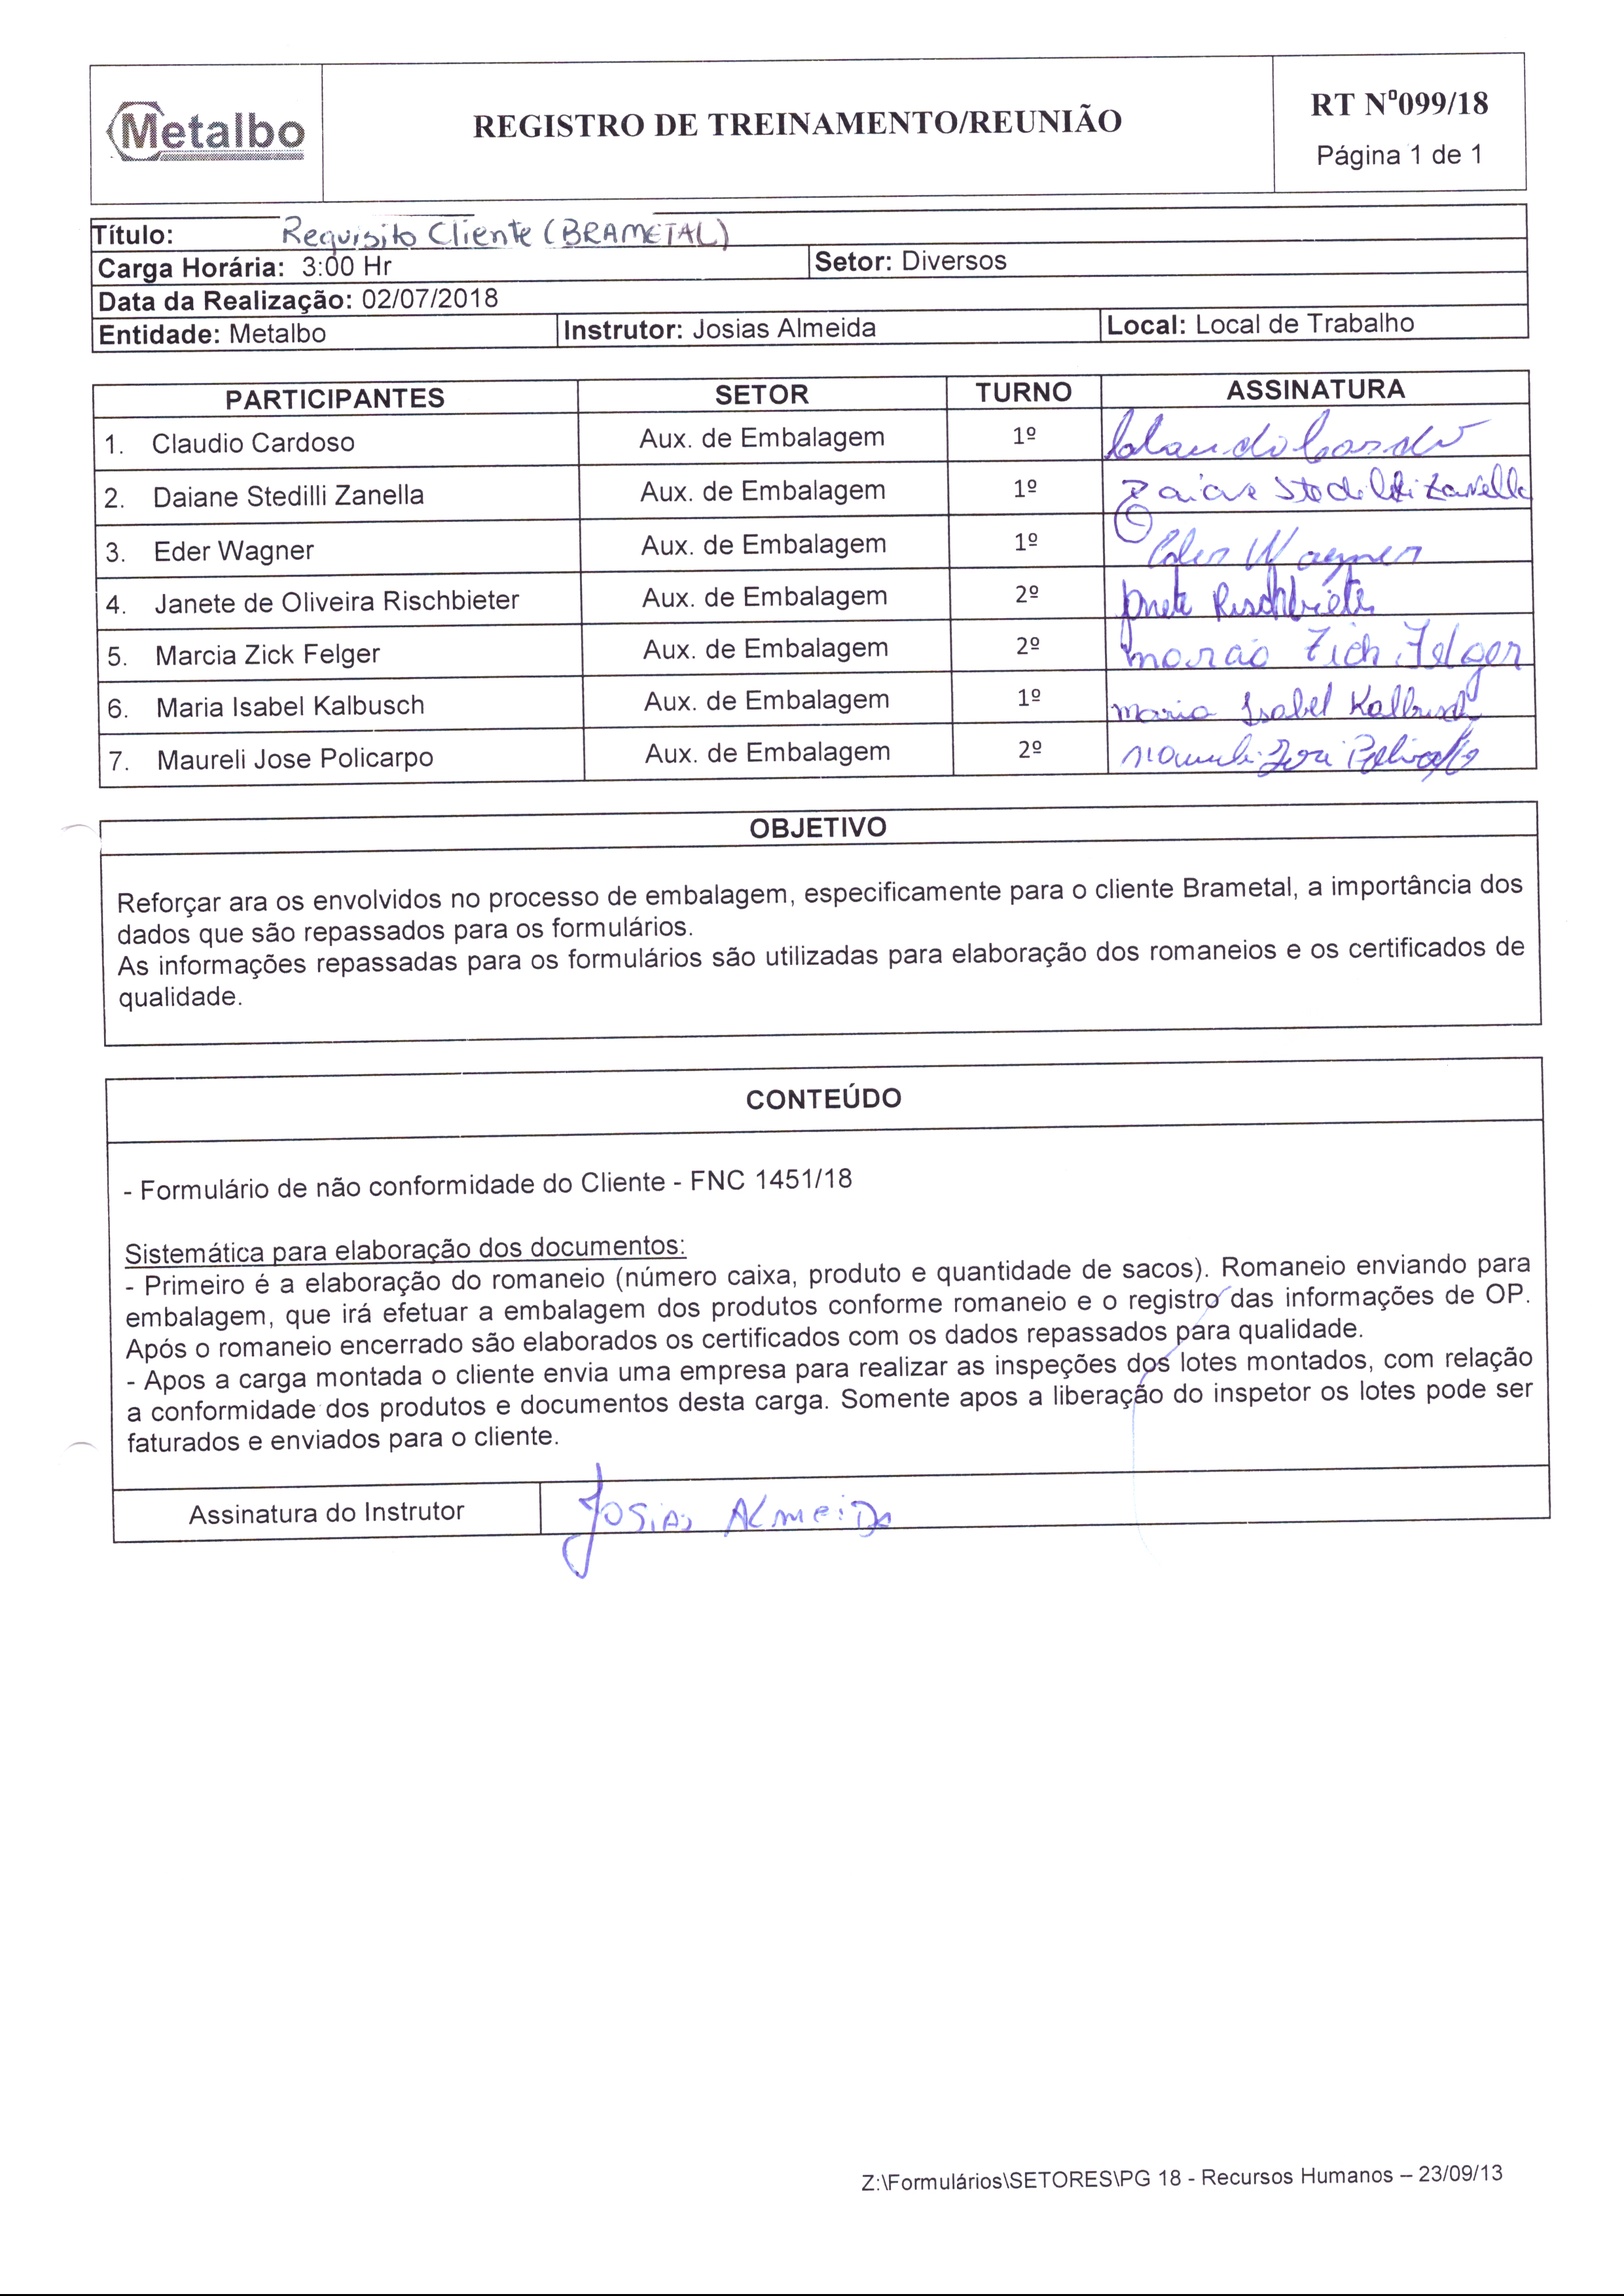 Metalbo
REGISTRO DE TREINAMENTO/REUNIÃO
RT Nº099/18
Página 1 de 1
Título: Requisito Cliente (BRAMETAL)
Carga Horária: 3:00 Hr Setor: Diversos
Data da Realização: 02/07/2018
Entidade: Metalbo Instrutor: Josias Almeida Local: Local de Trabalho
PARTICIPANTES SETOR TURNO ASSINATURA
1. Claudio Cardoso Aux. de Embalagem 1º
2. Daiane Stedilli Zanella Aux. de Embalagem 1º Zanella
3. Eder Wagner Aux. de Embalagem 1º Eder Wagner
4. Janete de Oliveira Rischbieter Aux. de Embalagem 2º Janete Rischbieter
5. Marcia Zick Felger Aux. de Embalagem 2º Felger
6. Maria Isabel Kalbusch Aux. de Embalagem 1º Maria Isabel Kalbusch
7. Maureli Jose Policarpo Aux. de Embalagem 2º
OBJETIVO
Reforçar ara os envolvidos no processo de embalagem, especificamente para o cliente Brametal, a importância dos
dados que são repassados para os formulários.
As informações repassadas para os formulários são utilizadas para elaboração dos romaneios e os certificados de
qualidade.
CONTEÚDO
- Formulário de não conformidade do Cliente - FNC 1451/18
Sistemática para elaboração dos documentos:
- Primeiro é a elaboração do romaneio (número caixa, produto e quantidade de sacos). Romaneio enviando para
embalagem, que irá efetuar a embalagem dos produtos conforme romaneio e o registro das informações de OP.
Após o romaneio encerrado são elaborados os certificados com os dados repassados para qualidade.
- Apos a carga montada o cliente envia uma empresa para realizar as inspeções dos lotes montados, com relação
a conformidade dos produtos e documentos desta carga. Somente apos a liberação do inspetor os lotes pode ser
faturados e enviados para o cliente.
Assinatura do Instrutor Josias Almeida
Z:\Formulários\SETORES\PG 18 - Recursos Humanos – 23/09/13